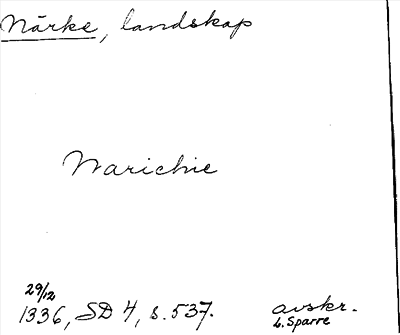 Närke, landskap
Narichie
29/12
1336, SD 4, s. 537. avskr.
L. Sparre